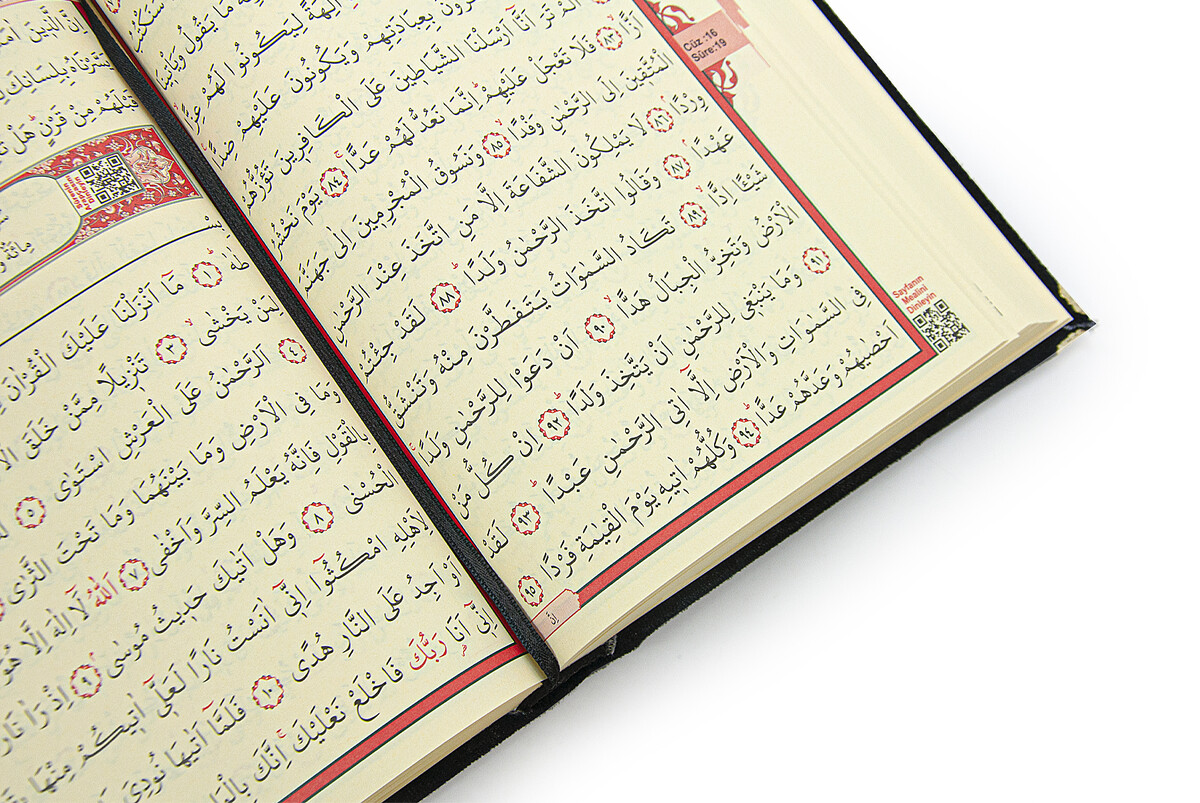 مَا يَقُولُ
اٰلِهَةً لِيَكُونُوا لَهُمْ عِزًّا
بِعِبَادَتِهِمْ وَيَكُونُونَ عَلَيْهِمْ ضِدًّا
اَلَمْ تَرَ اَنَّٓا اَرْسَلْنَا الشَّيَاطٖينَ عَلَى الْكَافِرٖينَ تَؤُزُّهُمْ
اَزًّا ٨٣ فَلَا تَعْجَلْ عَلَيْهِمْ اِنَّمَا نَعُدُّ لَهُمْ عَدًّا ٨٤ يَوْمَ نَحْشُرُ
الْمُتَّقٖينَ اِلَى الرَّحْمٰنِ وَفْدًا ٨٥ وَنَسُوقُ الْمُجْرِمٖينَ اِلٰى جَهَنَّمَ
وِرْدًا ٨٦ لَا يَمْلِكُونَ الشَّفَاعَةَ اِلَّا مَنِ اتَّخَذَ عِنْدَ الرَّحْمٰنِ
عَهْدًا ٨٧ وَقَالُوا اتَّخَذَ الرَّحْمٰنُ وَلَدًا ٨٨ لَقَدْ جِئْتُمْ
شَيْـًٔا اِدًّا ٨٩ تَكَادُ السَّمٰوَاتُ يَتَفَطَّرْنَ مِنْهُ وَتَنْشَقُّ
الْاَرْضُ وَتَخِرُّ الْجِبَالُ هَدًّا ٩٠ اَنْ دَعَوْا لِلرَّحْمٰنِ وَلَدًا
٩١ وَمَا يَنْبَغٖي لِلرَّحْمٰنِ اَنْ يَتَّخِذَ وَلَدًا ٩٢ اِنْ كُلُّ مَنْ
فِي السَّمٰوَاتِ وَالْاَرْضِ اِلَّٓا اٰتِي الرَّحْمٰنِ عَبْدًا ٩٣ لَقَدْ
اَحْصٰيهُمْ وَعَدَّهُمْ عَدًّا ٩٤ وَكُلُّهُمْ اٰتٖيهِ يَوْمَ الْقِيٰمَةِ فَرْدًا ٩٥
اِنَّ
Cüz :16
Sûre:19
Sayfanın
Mealini
Dinleyin
اِنَّ الَّذٖينَ
يَسَّرْنَاهُ بِلِسَانِكَ
قَبْلَهُمْ مِنْ قَرْنٍ هَلْ
طٰهٰ ١ مَٓا اَنْزَلْنَا عَلَيْكَ الْقُرْاٰنَ
لِمَنْ يَخْشٰى ٣ تَنْزٖيلًا مِمَّنْ خَلَقَ
٤ اَلرَّحْمٰنُ عَلَى الْعَرْشِ اسْتَوٰى ٥
وَمَا فِي الْاَرْضِ وَمَا بَيْنَهُمَا وَمَا تَحْتَ الثَّرٰى
بِالْقَوْلِ فَاِنَّهُ يَعْلَمُ السِّرَّ وَاَخْفٰى ٧ اَللّٰهُ لَٓا اِلٰهَ اِلَّا هُوَ
الْحُسْنٰى ٨ وَهَلْ اَتٰيكَ حَدٖيثُ مُوسٰى ٩ اِذْ رَاٰ نَارًا
لِاَهْلِهِ امْكُثُٓوا اِنّٖٓي اٰنَسْتُ نَارًا لَعَلّٖٓي اٰتٖيكُمْ مِنْهَا
اَوْ اَجِدُ عَلَى النَّارِ هُدًى ١٠ فَلَمَّٓا اَتٰيهَا نُودِيَ
اِنّٖٓي اَنَا۬ رَبُّكَ فَاخْلَعْ نَعْلَيْكَ اِنَّكَ